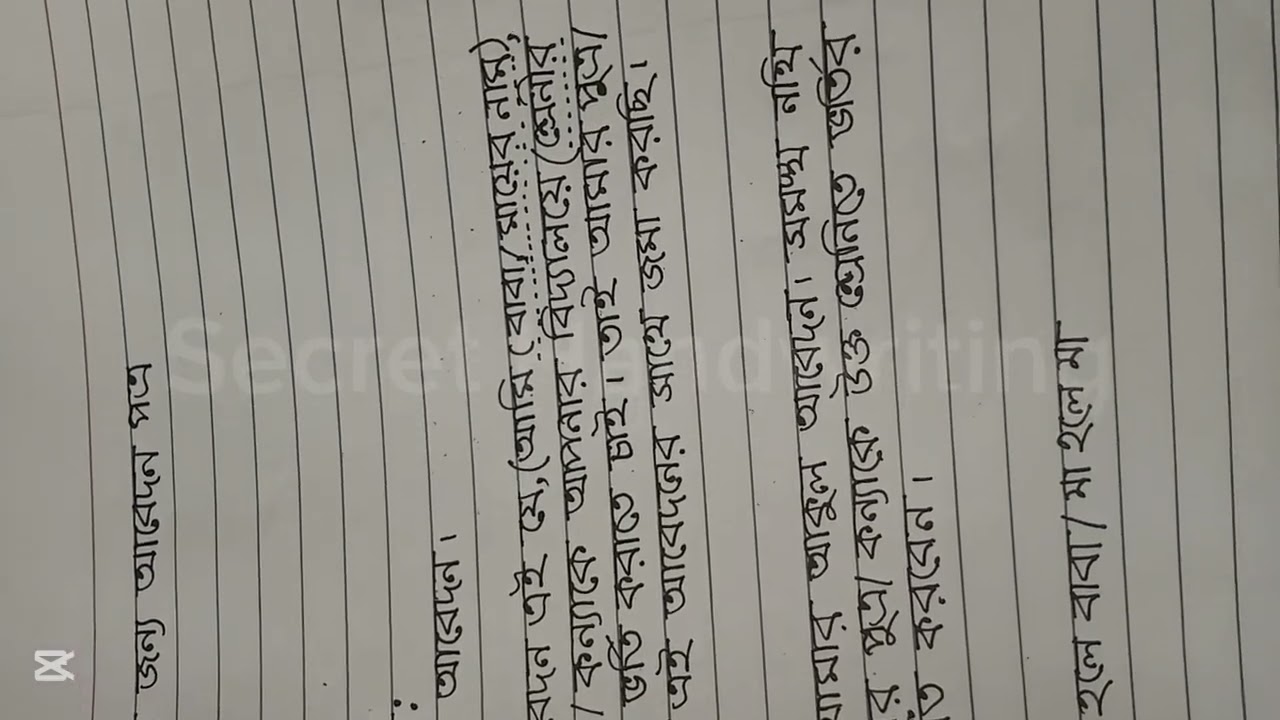 জন্য আবেদন পত্র
আবেদন।
বেদন এই যে, (আমি (বাবা/মায়ের নাম),
/ কন্যাকে আপনার বিদ্যালয়ে (শ্রেনীর
ভর্তি করাতে চাই। তাই আমার পুত্র/
এই আবেদনের সাথে জমা করছি।
আমার আকুল আবেদন। সমস্ত নথি
র পুত্র/ কন্যাকে উক্ত শ্রেনিতে ভর্তির
ত করবেন।
হলে বাবা/ মা হলে মা
Secret Handwriting